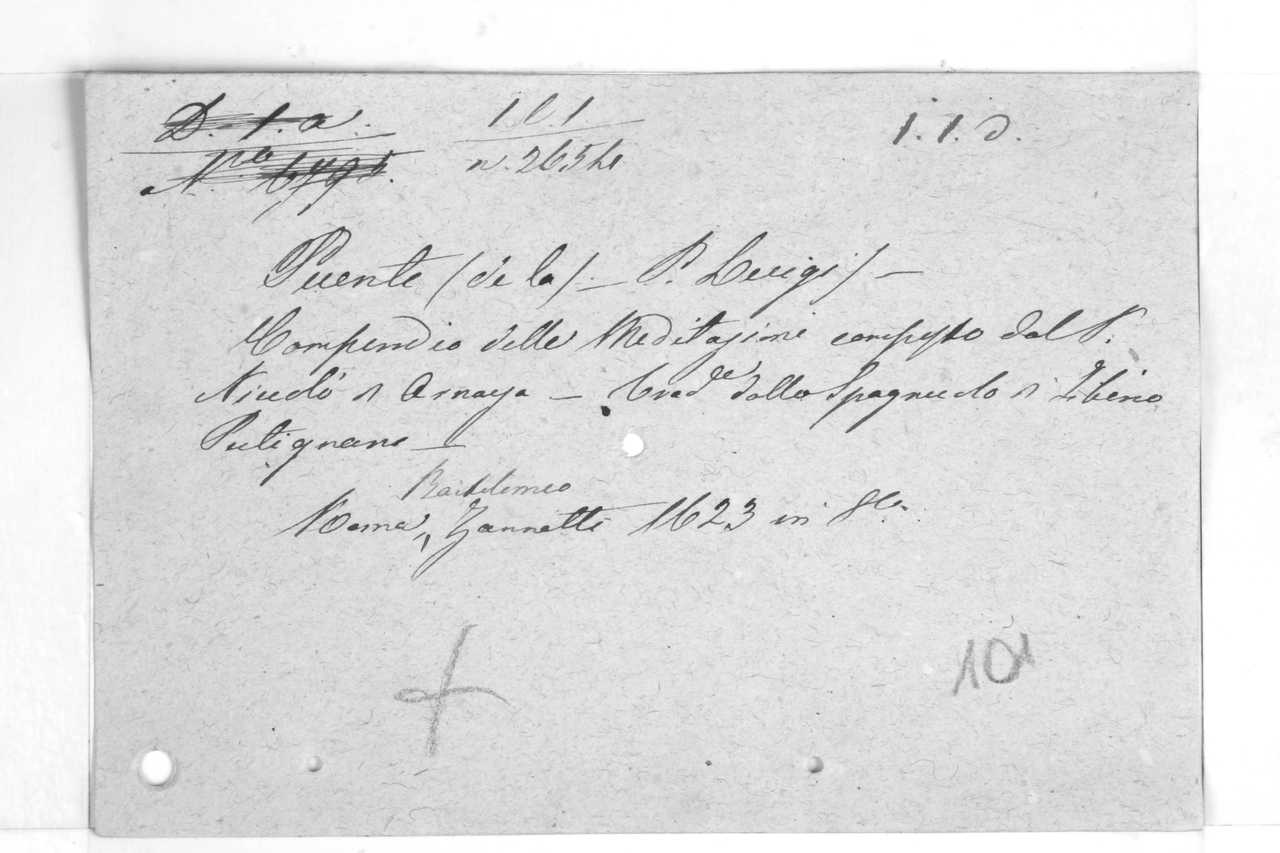 D. 1. a. 1.l.1 1.1.d.
Nro
Puente (de la) - P. Luigi) -
Compendio delle Meditazioni composto dal P.
Nicolò d Arnaya - Trad.e dallo Spagnuolo d Tiberio
Putignano -
Bartolomeo
Roma, Zannetti 1623 in 8o.
101